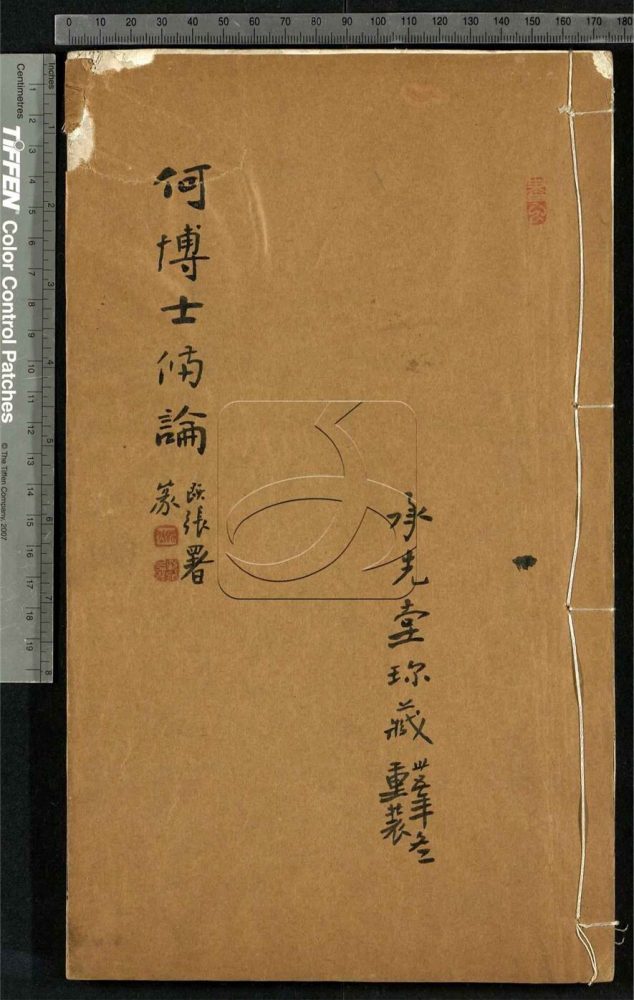 何博士俻論
張署
承先堂珎藏
重裝
0 10 20 30 40 50 60 70 80 90 100 110 120 130 140 150 160 170 180
Inches
1
2
3
4
5
6
7
8
Centimetres
1 2 3 4 5 6 7 8 9 10 11 12 13 14 15 16 17 18 19
TIFFEN Color Control Patches
© The Tiffen Company, 2007